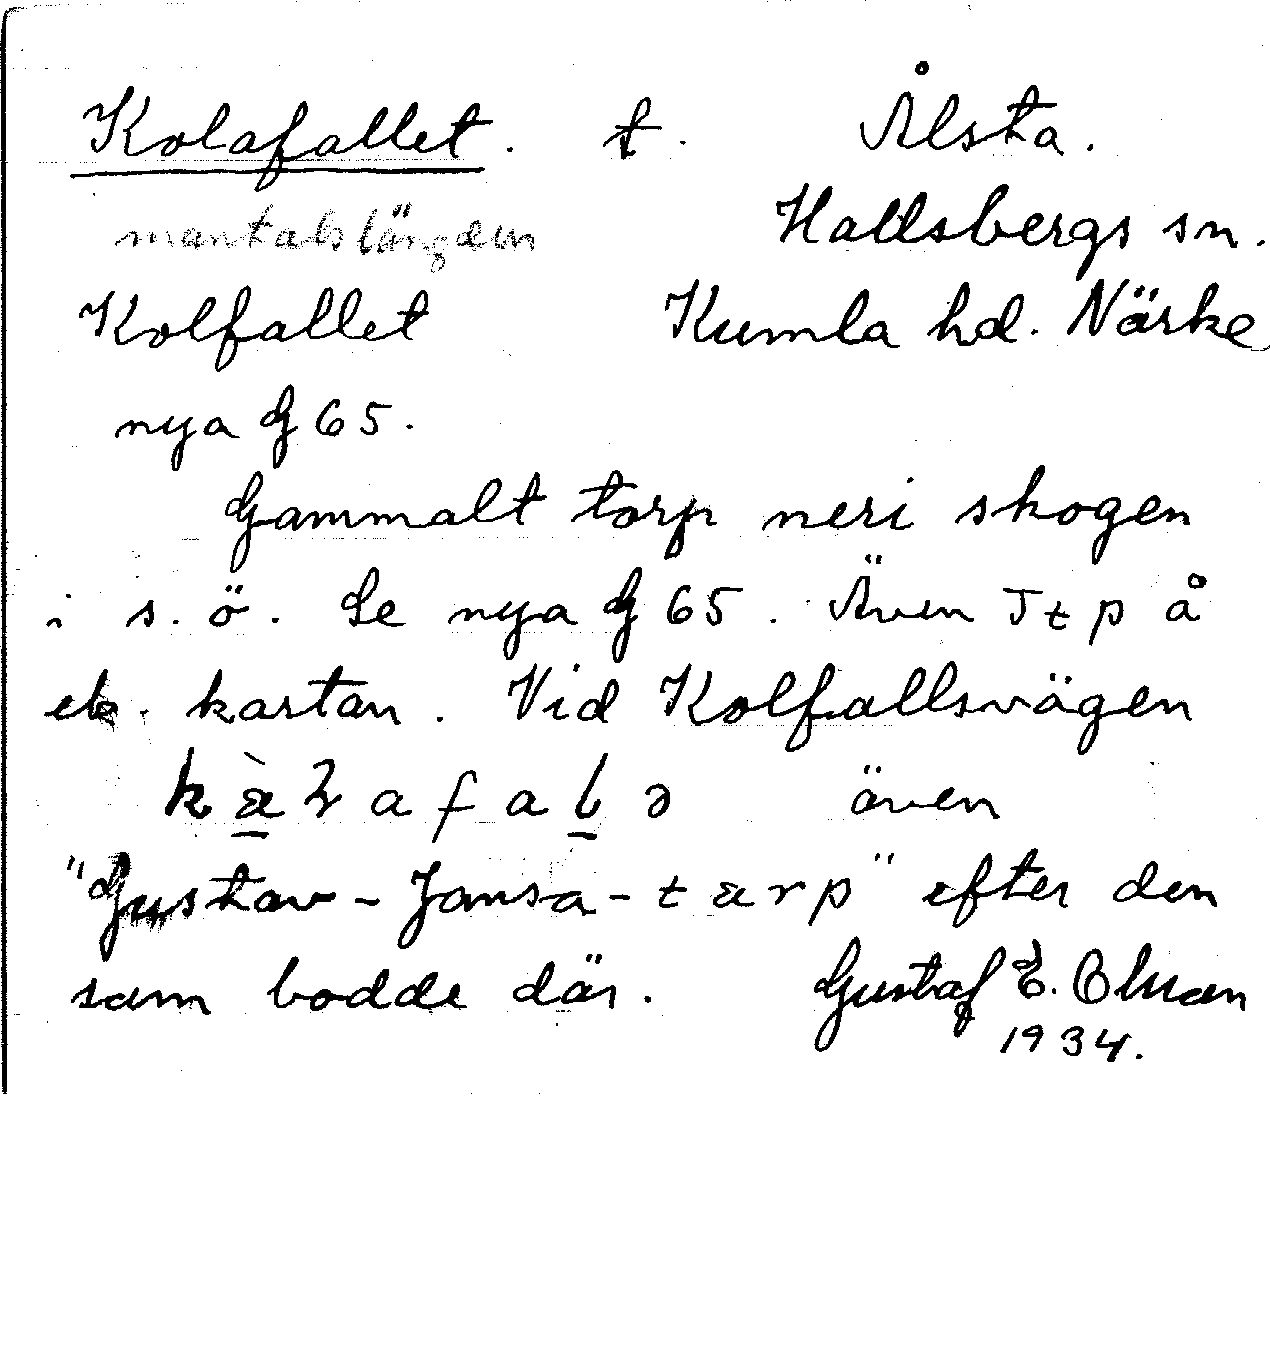 Kolafallet. t. Ålsta.
mantalslängden Hallsbergs sn.
Kolfallet Kumla hd. Närke
nya G 65.
Gammalt torp neri skogen
i s. ö. Se nya G 65. Även T t p å
ek. kartan. Vid Kolfallsvägen
även
"Gustav-Jansa-tarp" efter den
som bodde där. Gustaf E. Ohman
1934.